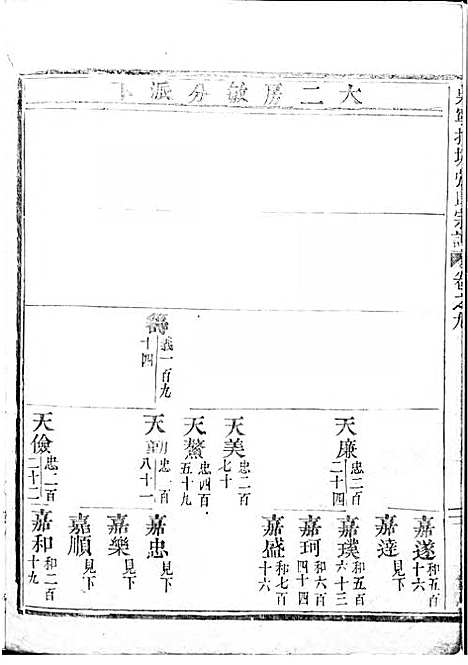 大二房敏分派下
宗譜 卷之九
義一百九十四
天廉 忠二百二十四
天美 忠二百七十
天鰲 忠四百五十九
天 忠一百八十一
天儉 忠二百二十二
嘉遂 和五百十六
嘉達 見下
嘉璞 和五百六十三
嘉珂 和六百四十四
嘉盛 和七百十六
嘉忠 見下
嘉樂 見下
嘉順 見下
嘉和 和二百十九